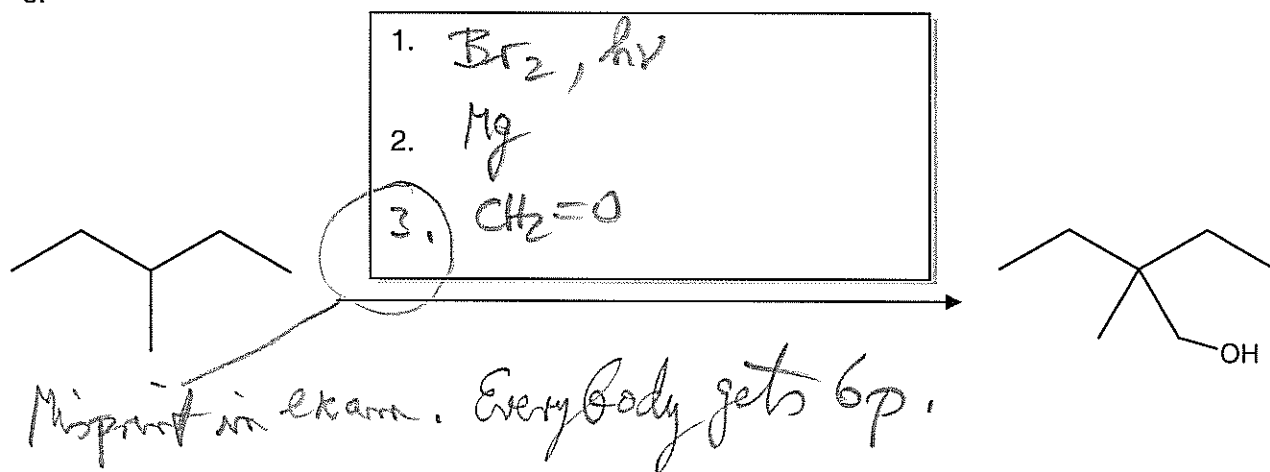 1. Br2, hν
2. Mg
3. CH2=O
OH
Misprint in exam. Everybody gets 6p.